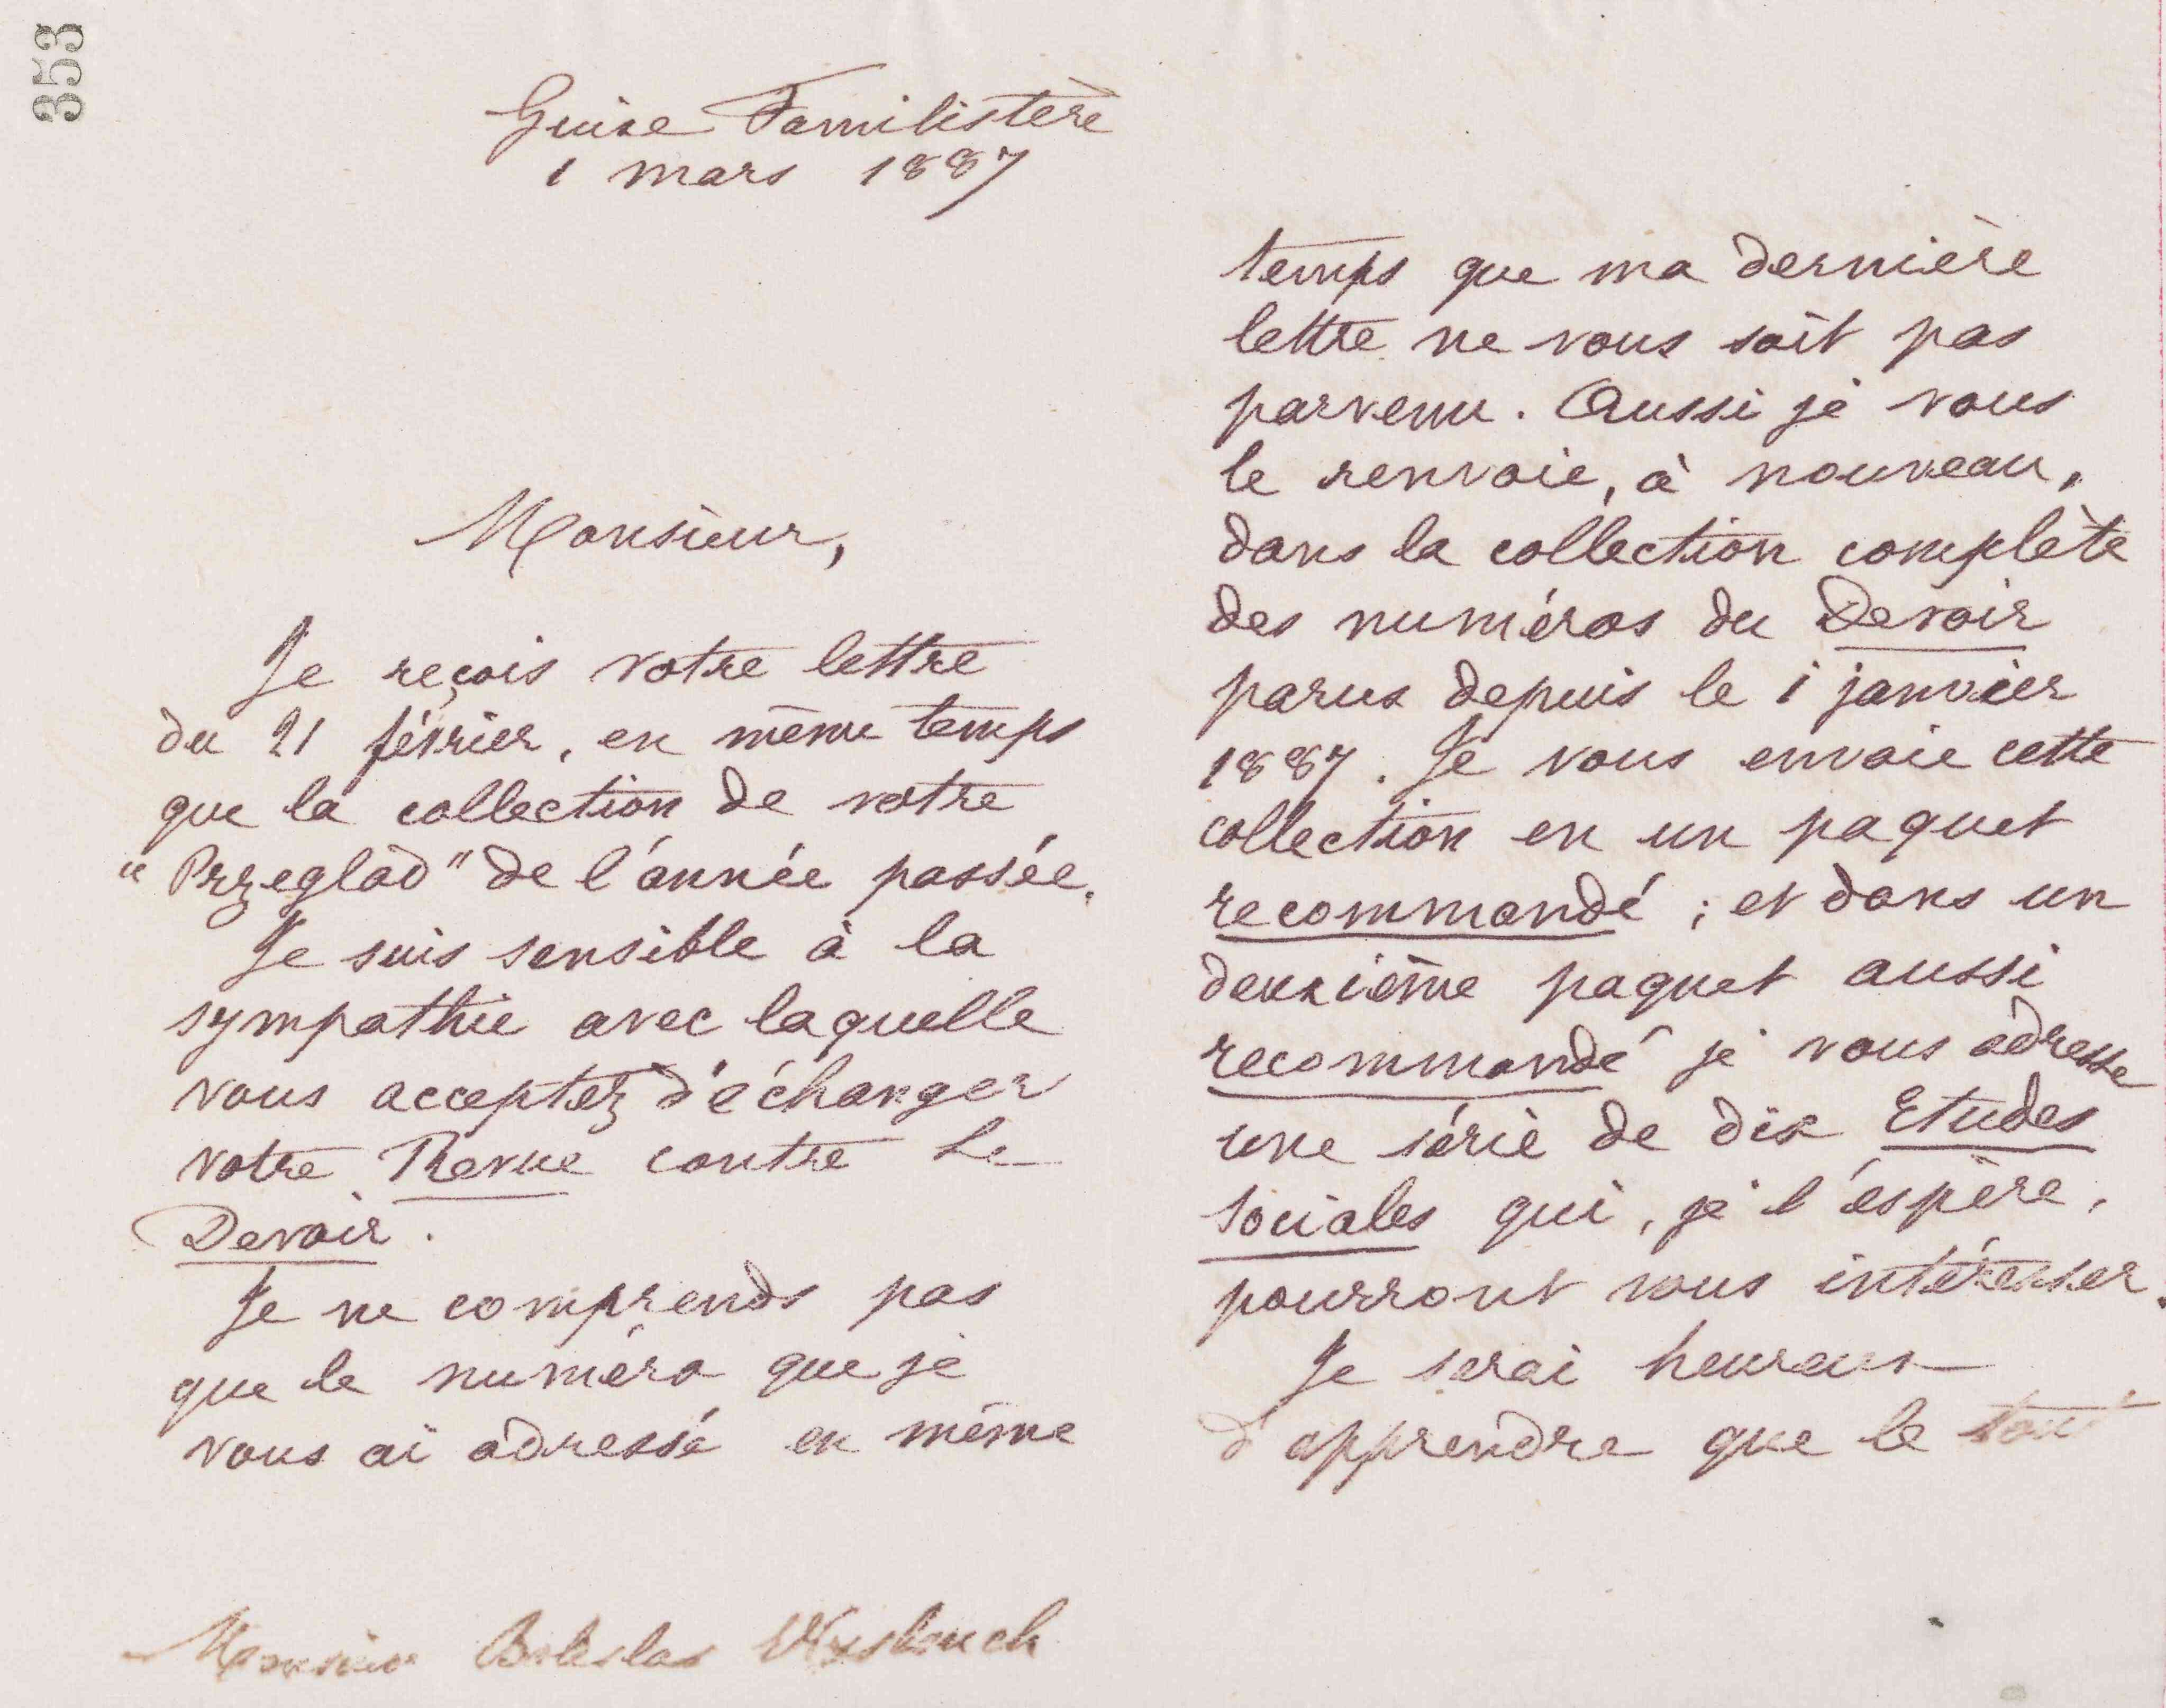 353
Guise Familistère
1 mars 1887
Monsieur,
Je reçois votre lettre
du 21 février, en même temps
que la collection de votre
"Przeglad" de l'année passée.
Je suis sensible à la
sympathie avec laquelle
vous acceptez d'échanger
votre Revue contre Le
Devoir.
Je ne comprends pas
que le numéro que je
vous ai adressé en même
Monsieur Boleslas Wyslouch
temps que ma dernière
lettre ne vous soit pas
parvenu. Aussi je vous
le renvoie, à nouveau,
dans la collection complète
des numéros du Devoir
parus depuis le 1 janvier
1887. Je vous envoie cette
collection en un paquet
recommandé ; et dans un
deuxième paquet aussi
recommandé je vous adresse
une série de dix Etudes
sociales qui, je l'espère,
pourront vous intéresser.
Je serai heureux
d'apprendre que le tout